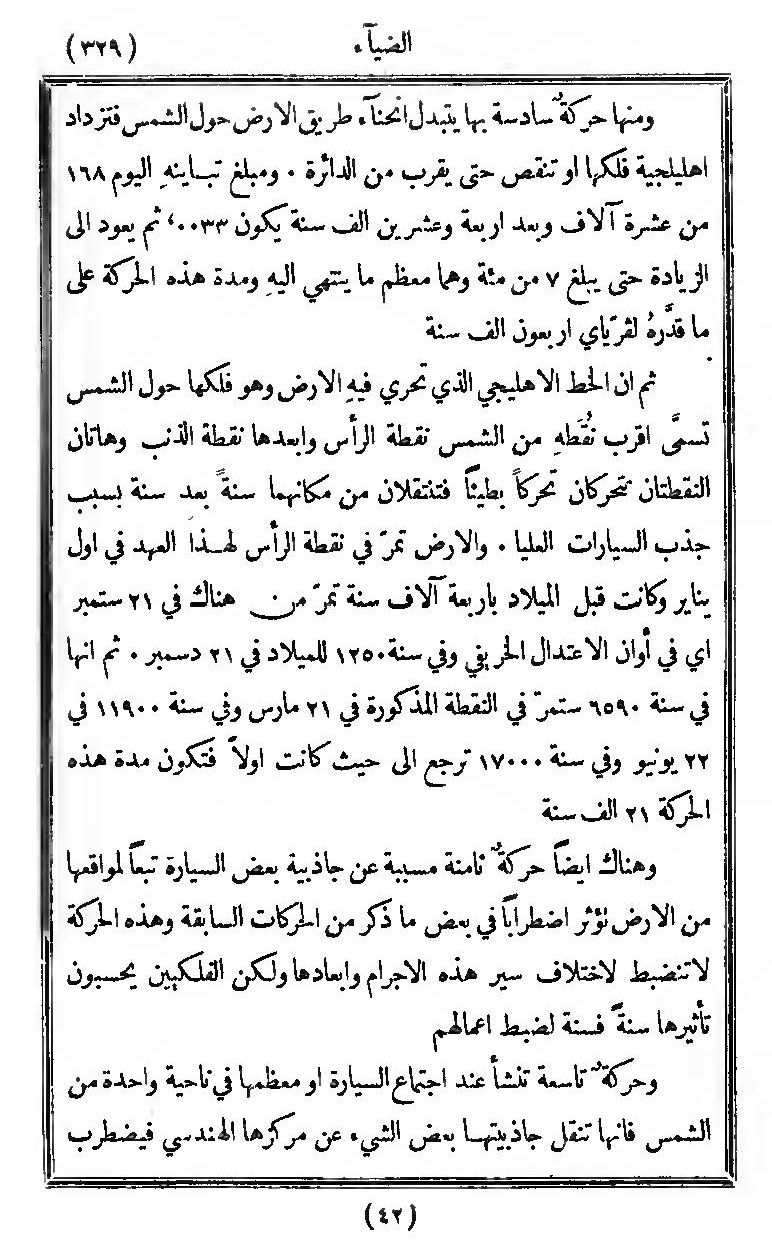 الضيآء (٣٢٩)
ومنها حركةٌ سادسة بها يتبدل انحنآء طريق الارض حول الشمس فتزداد
اهليلجية فلكها او تنقص حتى يقرب من الدائرة ٠ ومبلغ تباينهِ اليوم ١٦٨
من عشرة آلاف وبعد اربعة وعشرين الف سنة يكون ٠٠٣٣٬ ثم يعود الى
الزيادة حتى يبلغ ٧ من مئة وهما معظم ما ينتهي اليهِ ومدة هذه الحركة على
ما قدَّرهُ لڤرّياي اربعون الف سنة
ثم ان الخط الاهليلجي الذي تجري فيهِ الارض وهو فلكها حول الشمس
تسمَّى اقرب نُقَطهِ من الشمس نقطة الرأس وابعدها نقطة الذنب وهاتان
النقطتان تتحركان تحركاً بطيئاً فتنتقلان من مكانهما سنةً بعد سنة بسبب
جذب السيارات العليا ٠ والارض تمرّ في نقطة الرأس لهـذا العهد في اول
يناير وكانت قبل الميلاد باربعة آلاف سنة تمرّ من هناك في ٢١ ستمبر
اي في أوان الاعتدال الخريفي وفي سنة ١٢٥٠ للميلاد في ٢١ دسمبر ٠ ثم انها
في سنة ٦٥٩٠ ستمرّ في النقطة المذكورة في ٢١ مارس وفي سنة ١١٩٠٠ في
٢٢ يونيو وفي سنة ١٧٠٠٠ ترجع الى حيث كانت اولاً فتكون مدة هذه
الحركة ٢١ الف سنة
وهناك ايضاً حركةٌ ثامنة مسببة عن جاذبية بعض السيارة تبعاً لمواقعها
من الارض تؤثر اضطراباً في بعض ما ذكر من الحركات السابقة وهذه الحركة
لا تنضبط لاختلاف سير هذه الاجرام وابعادها ولكن الفلكيين يحسبون
تأثيرها سنةً فسنة لضبط اعمالهم
وحركةٌ تاسعة تنشأ عند اجتماع السيارة او معظمها في ناحية واحدة من
الشمس فانها تنقل جاذبيتهـا بعض الشيء عن مركزها الهندسي فيضطرب
(٤٢)